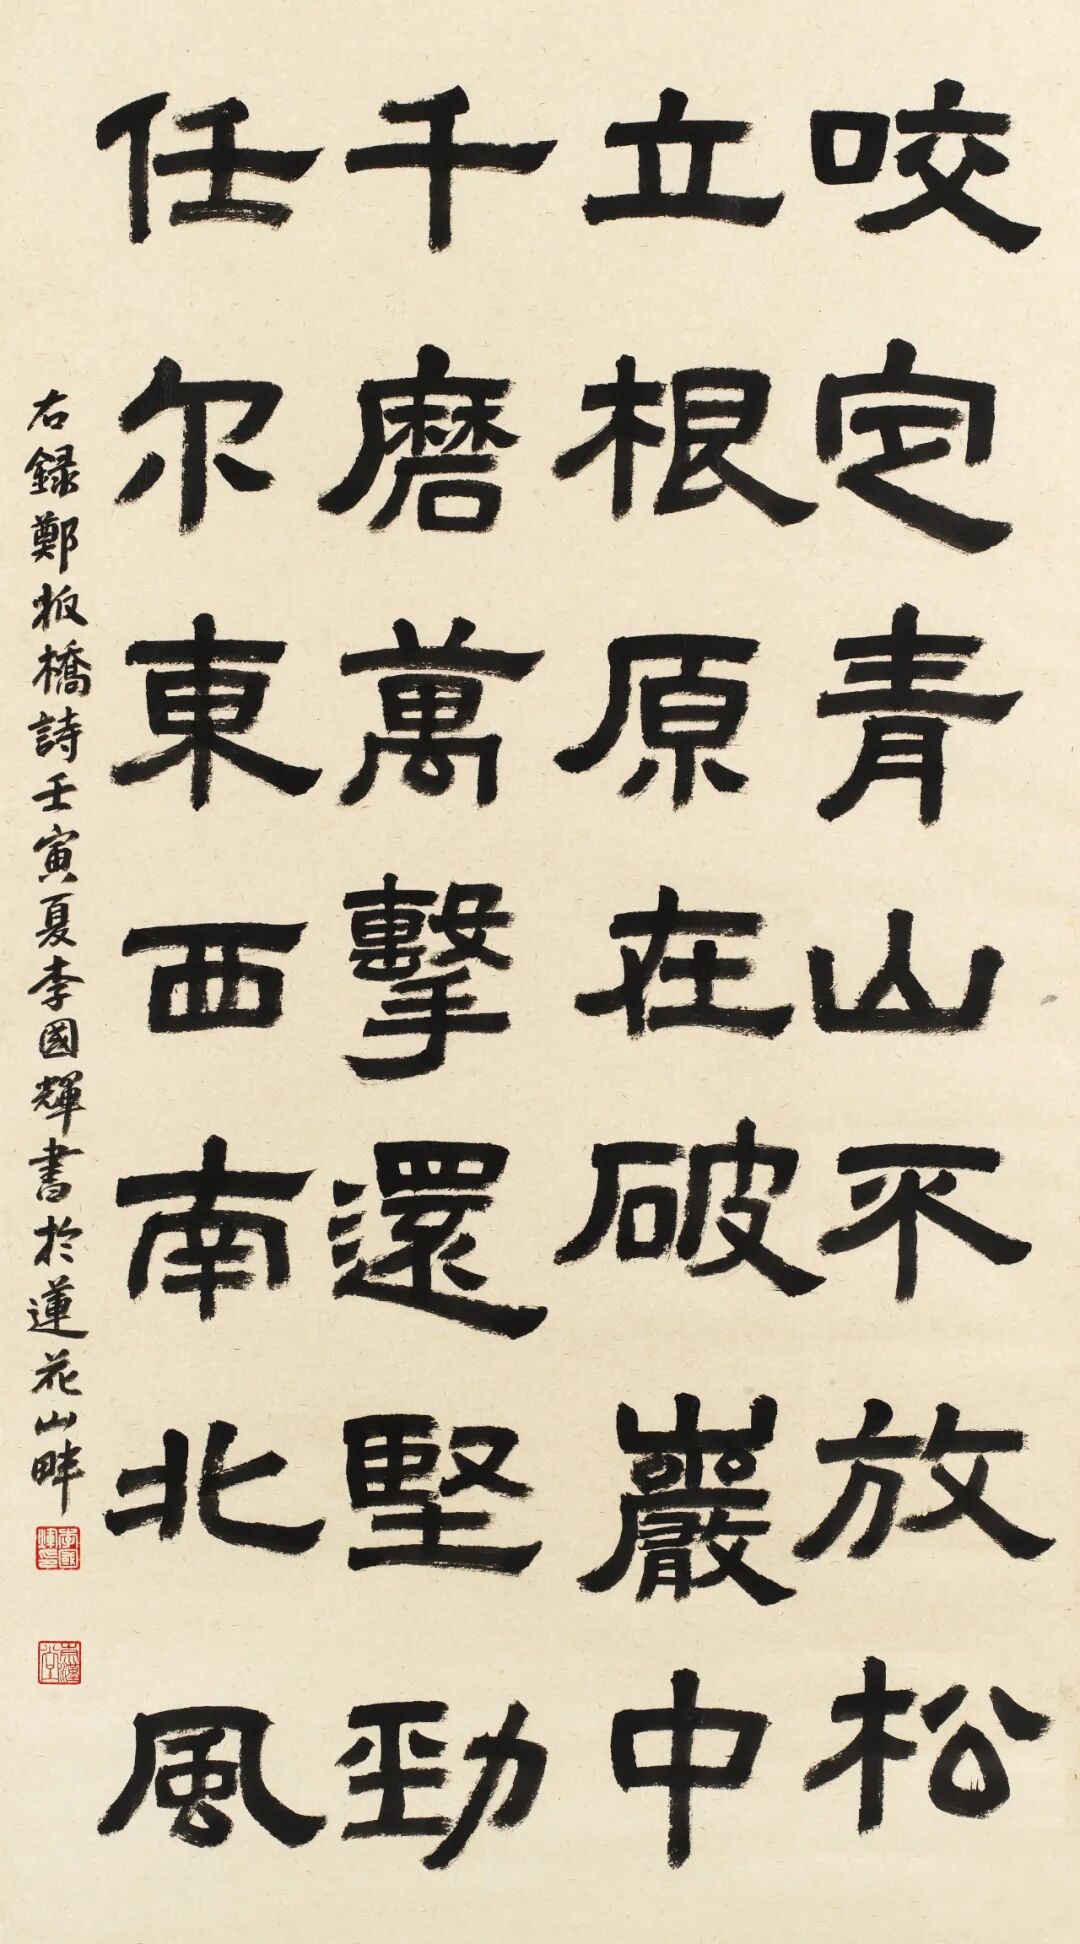 咬定青山不放松
立根原在破巖中
千磨萬擊還堅勁
任尔東西南北風
右録鄭板橋詩壬寅夏李國輝書於蓮花山畔